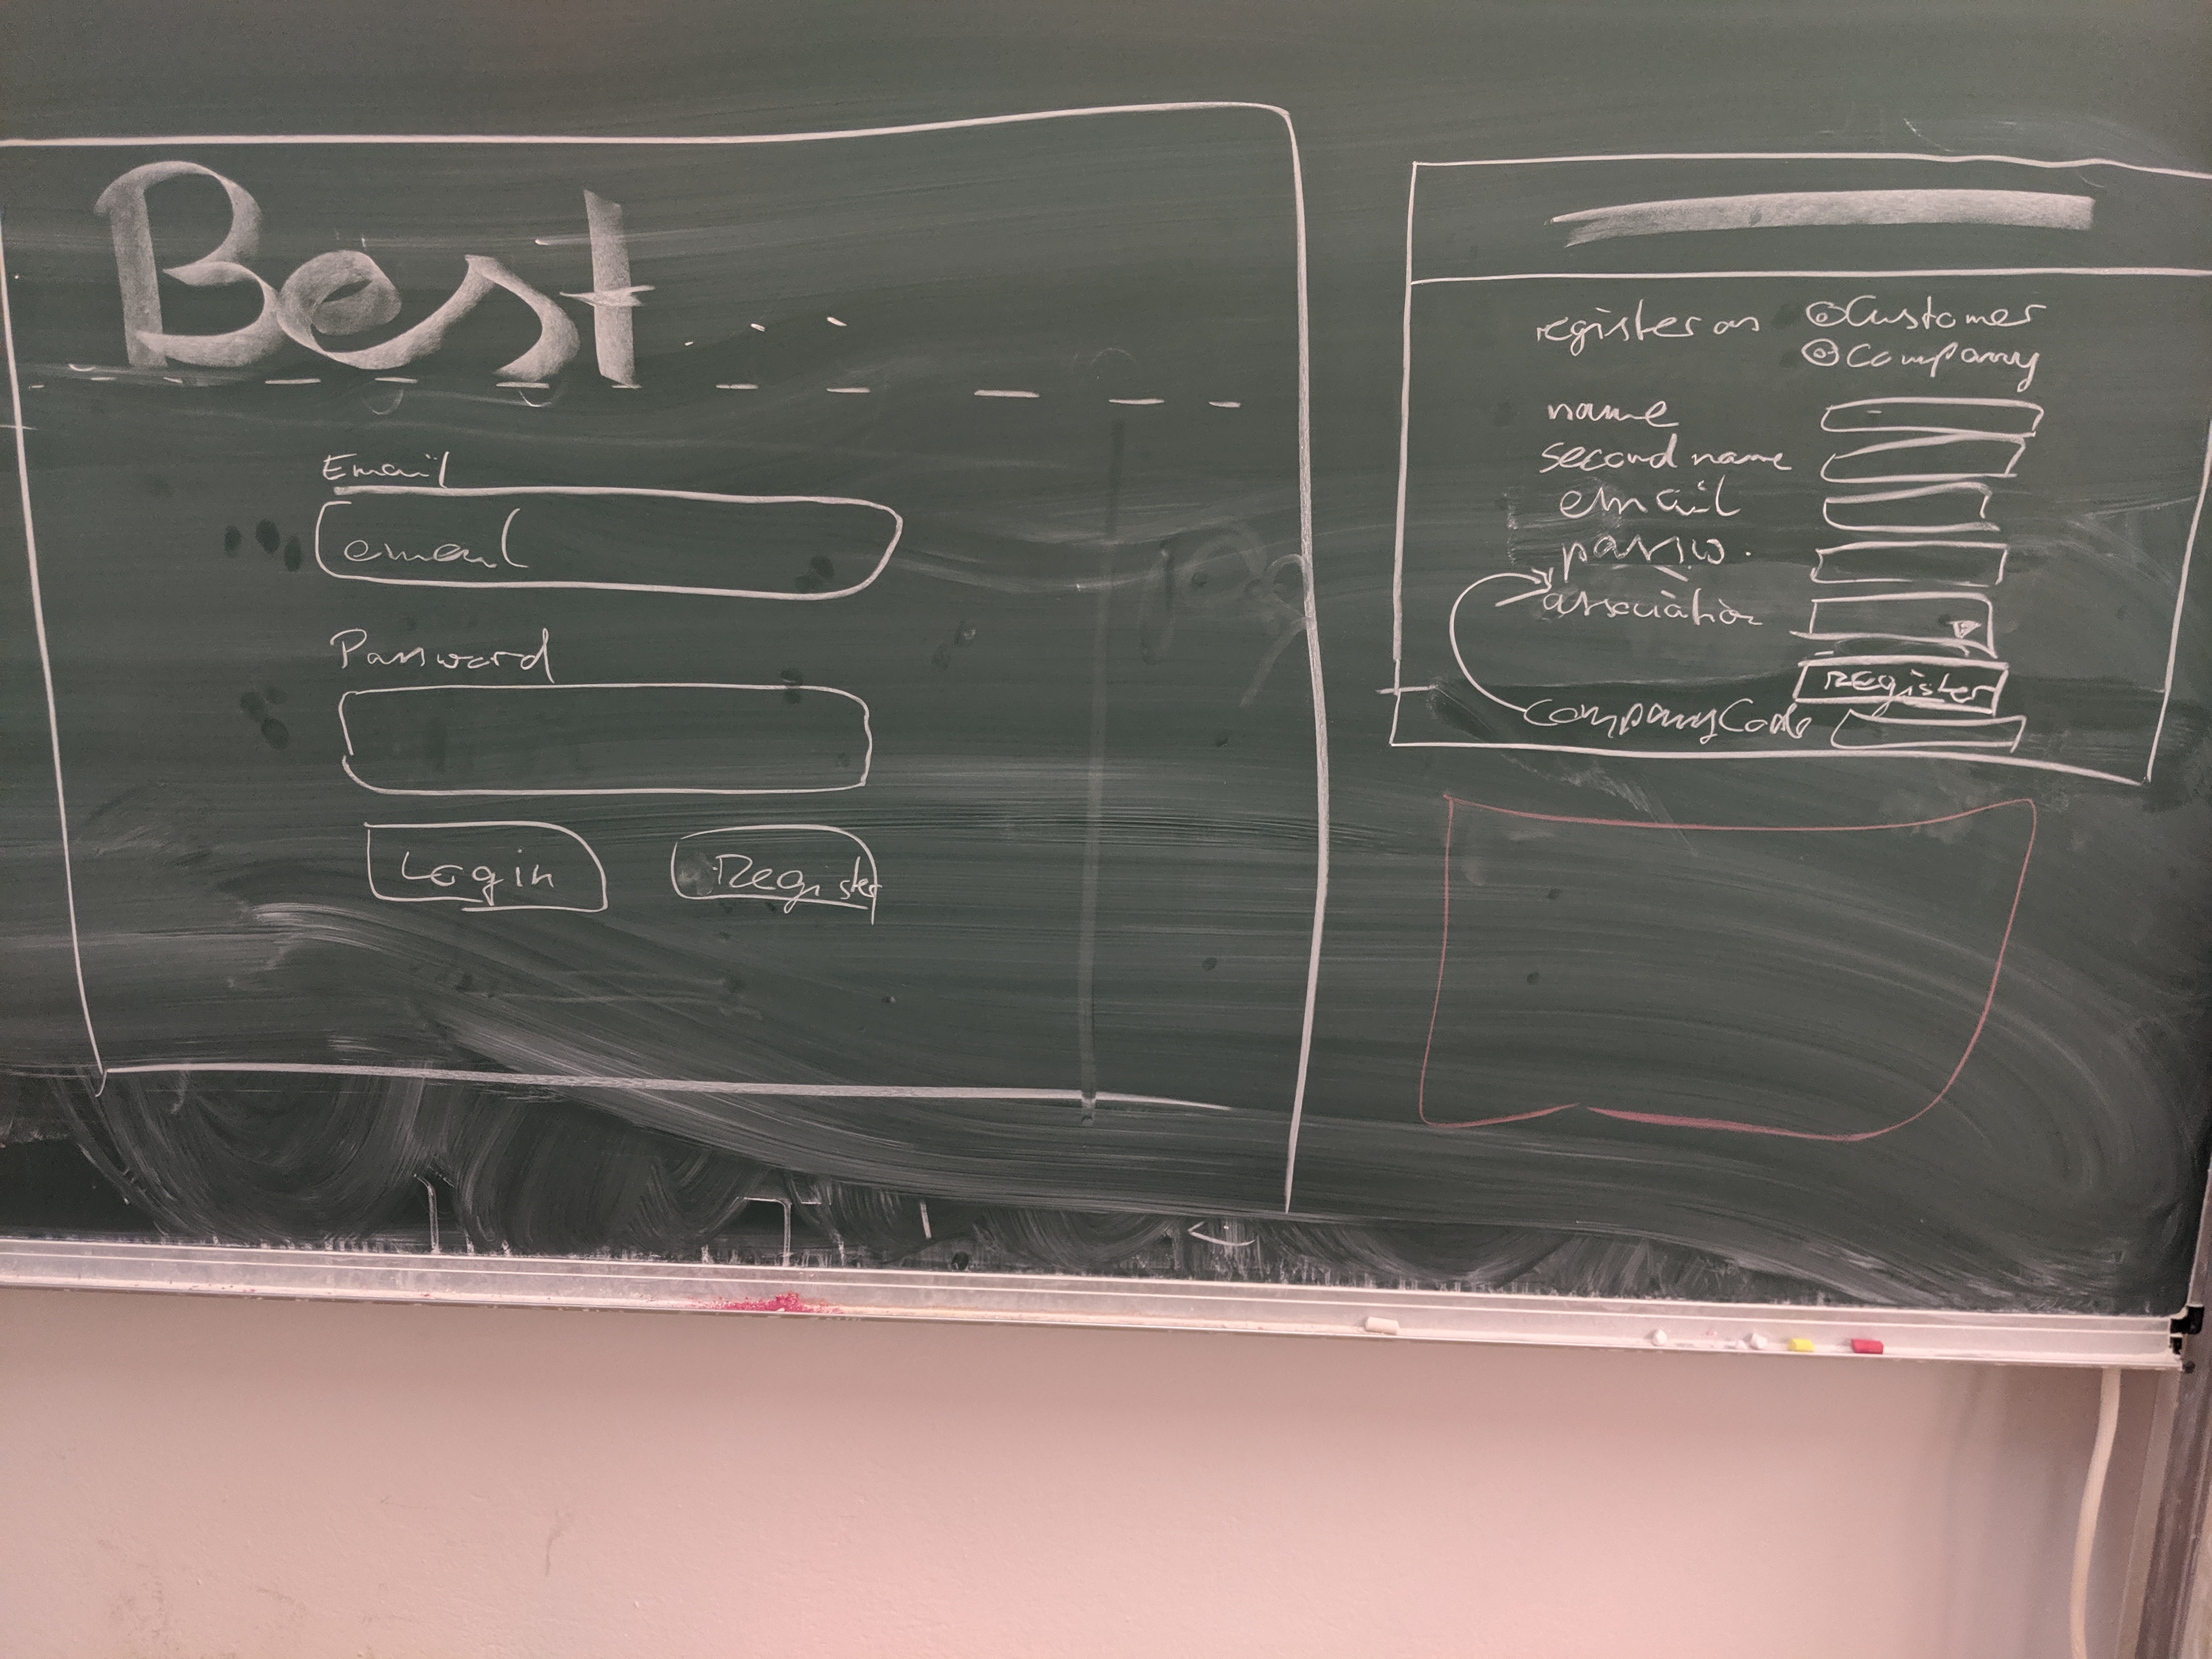 Best...
Email
email
Password
Login Register
register as Customer
Company
name
second name
email
passw.
association
Register
CompanyCode